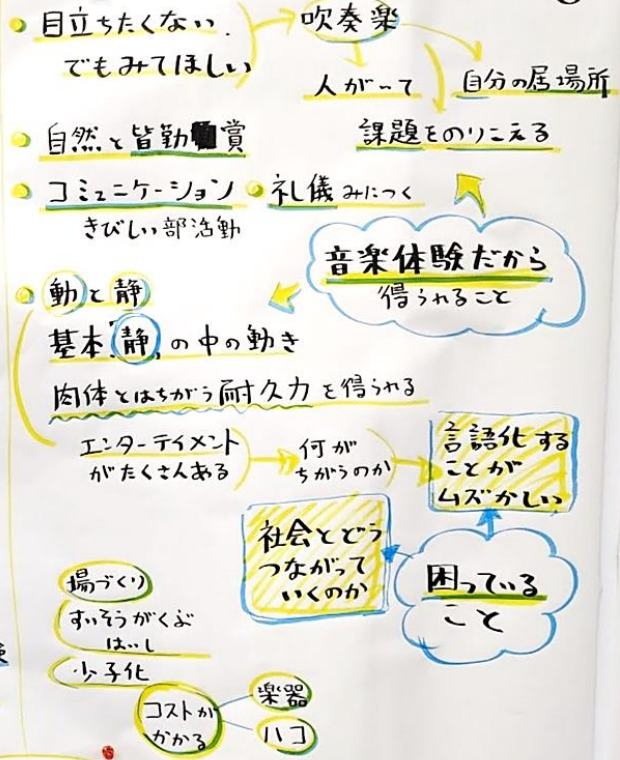 目立ちたくない
でもみてほしい
吹奏楽
人がいて
自分の居場所
課題をのりこえる
自然と皆勤賞
コミュニケーション
きびしい部活動
礼儀みにつく
音楽体験だから
得られること
動と静
基本「静」の中の動き
肉体とはちがう耐久力を得られる
エンターテイメント
がたくさんある
何が
ちがうのか
言語化する
ことが
ムズかしい
社会とどう
つながって
いくのか
困っている
こと
場づくり
すいそうがくぶ
はいし
少子化
コストが
かかる
楽器
ハコ